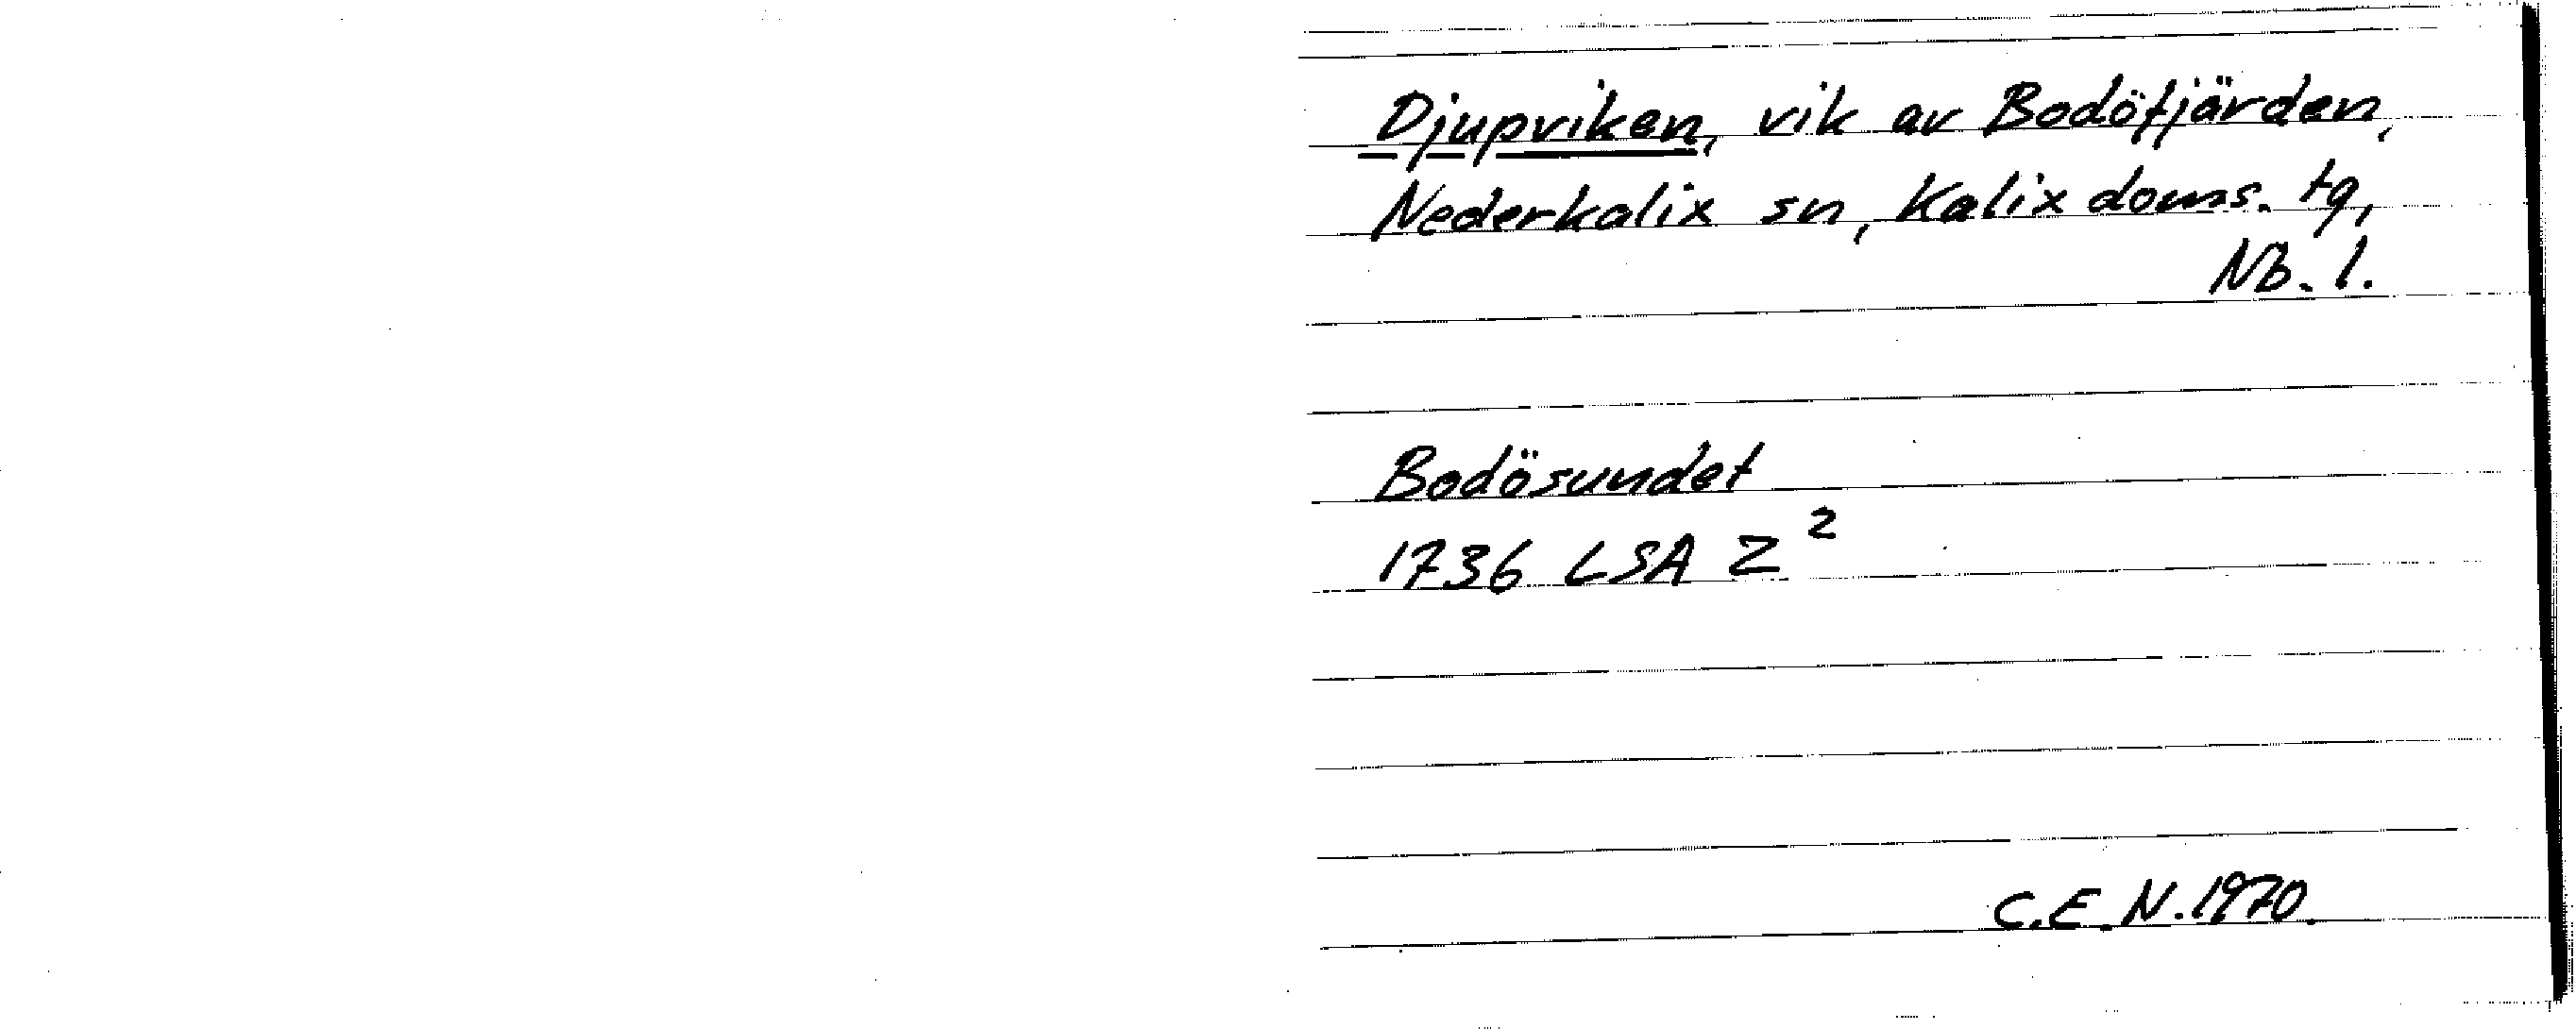 Djupviken, vik av Bodöfjärden,
Nederkalix sn, Kalix doms. tg,
Nb. l.
Bodösundet
1736 LSA Z²
C.E.N. 1970.